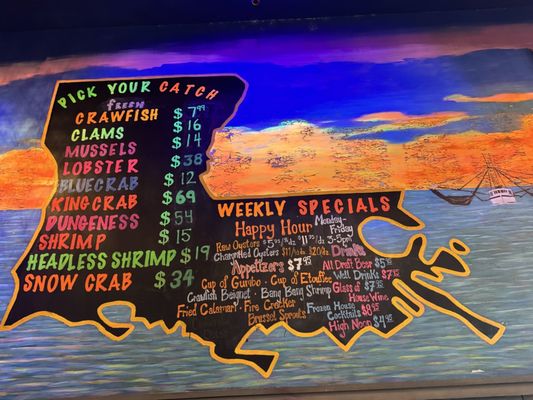 PICK YOUR CATCH
FRESH
CRAWFISH $7.99
CLAMS $16
MUSSELS $14
LOBSTER $38
BLUECRAB $12
KING CRAB $69
DUNGENESS $54
SHRIMP $15
HEADLESS SHRIMP $19
SNOW CRAB $34
WEEKLY SPECIALS
Happy Hour Monday-Friday 3-5PM
Raw Oysters
Chargrilled Oysters
Appetizers $7.95
Cup of Gumbo · Cup of Etouffee
Crawfish Beignet · Bang Bang Shrimp
Fried Calamari · Fire Cracker
Brussel Sprouts
Drinks
All Draft Beer
Well Drinks
Glass of
House Wine
Frozen House
Cocktails
High Noon